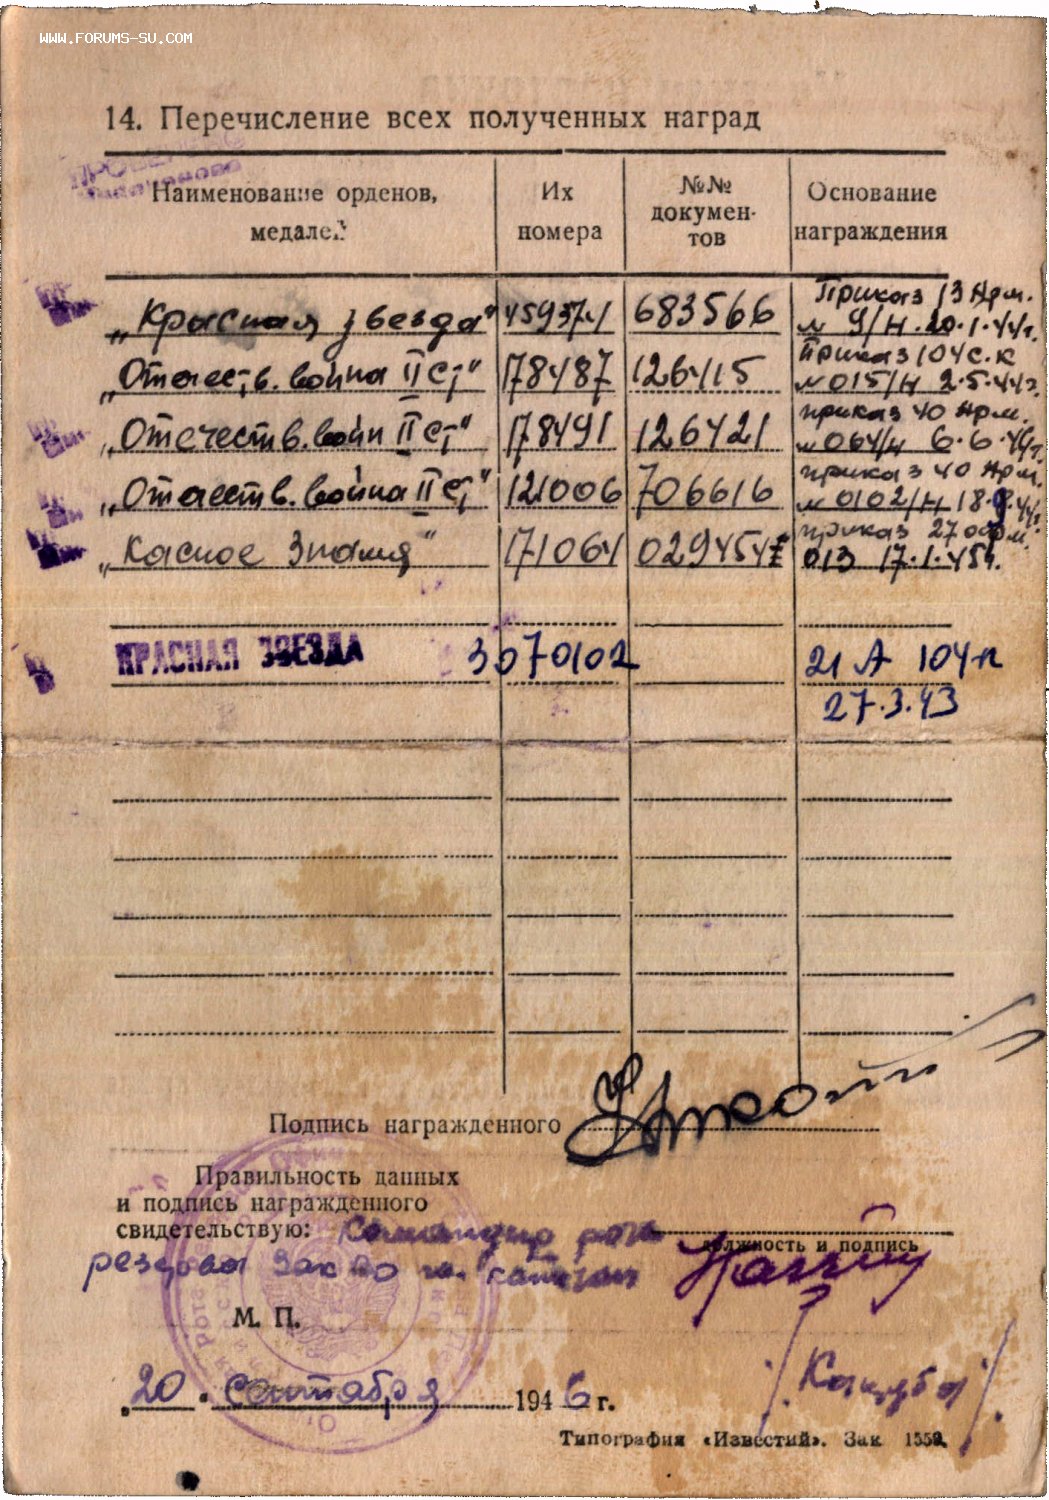 WWW.FORUMS-SU.COM
14. Перечисление всех полученных наград
Наименование орденов, медалей
Их номера
№№ докумен-тов
Основание награждения
Приказ 13 Арм.
„Красная звезда" 683566 № 9/н. 20.1.44г.
Приказ 104 с.к
„Отечеств. война II ст" 178487 126415 № 015/н 2.5.44г.
приказ 40 Арм.
„Отечеств. войн II ст" 178491 126421 № 064/н 6.6.44г.
приказ 40 Арм.
„Отечеств. война II ст" 121006 706616 № 0102/н 18.9.44г.
приказ 27
„Касное Знамя" 171064 013 17.1.45г.
КРАСНАЯ ЗВЕЗДА 3070102 21 А 104-н
27.3.43
Подпись награжденного
Правильность данных
и подпись награжденного
свидетельствую: Командир роты
должность и подпись
резерва капитан
М. П.
„20" сентября 1946 г.
Типография «Известий». Зак 1559.